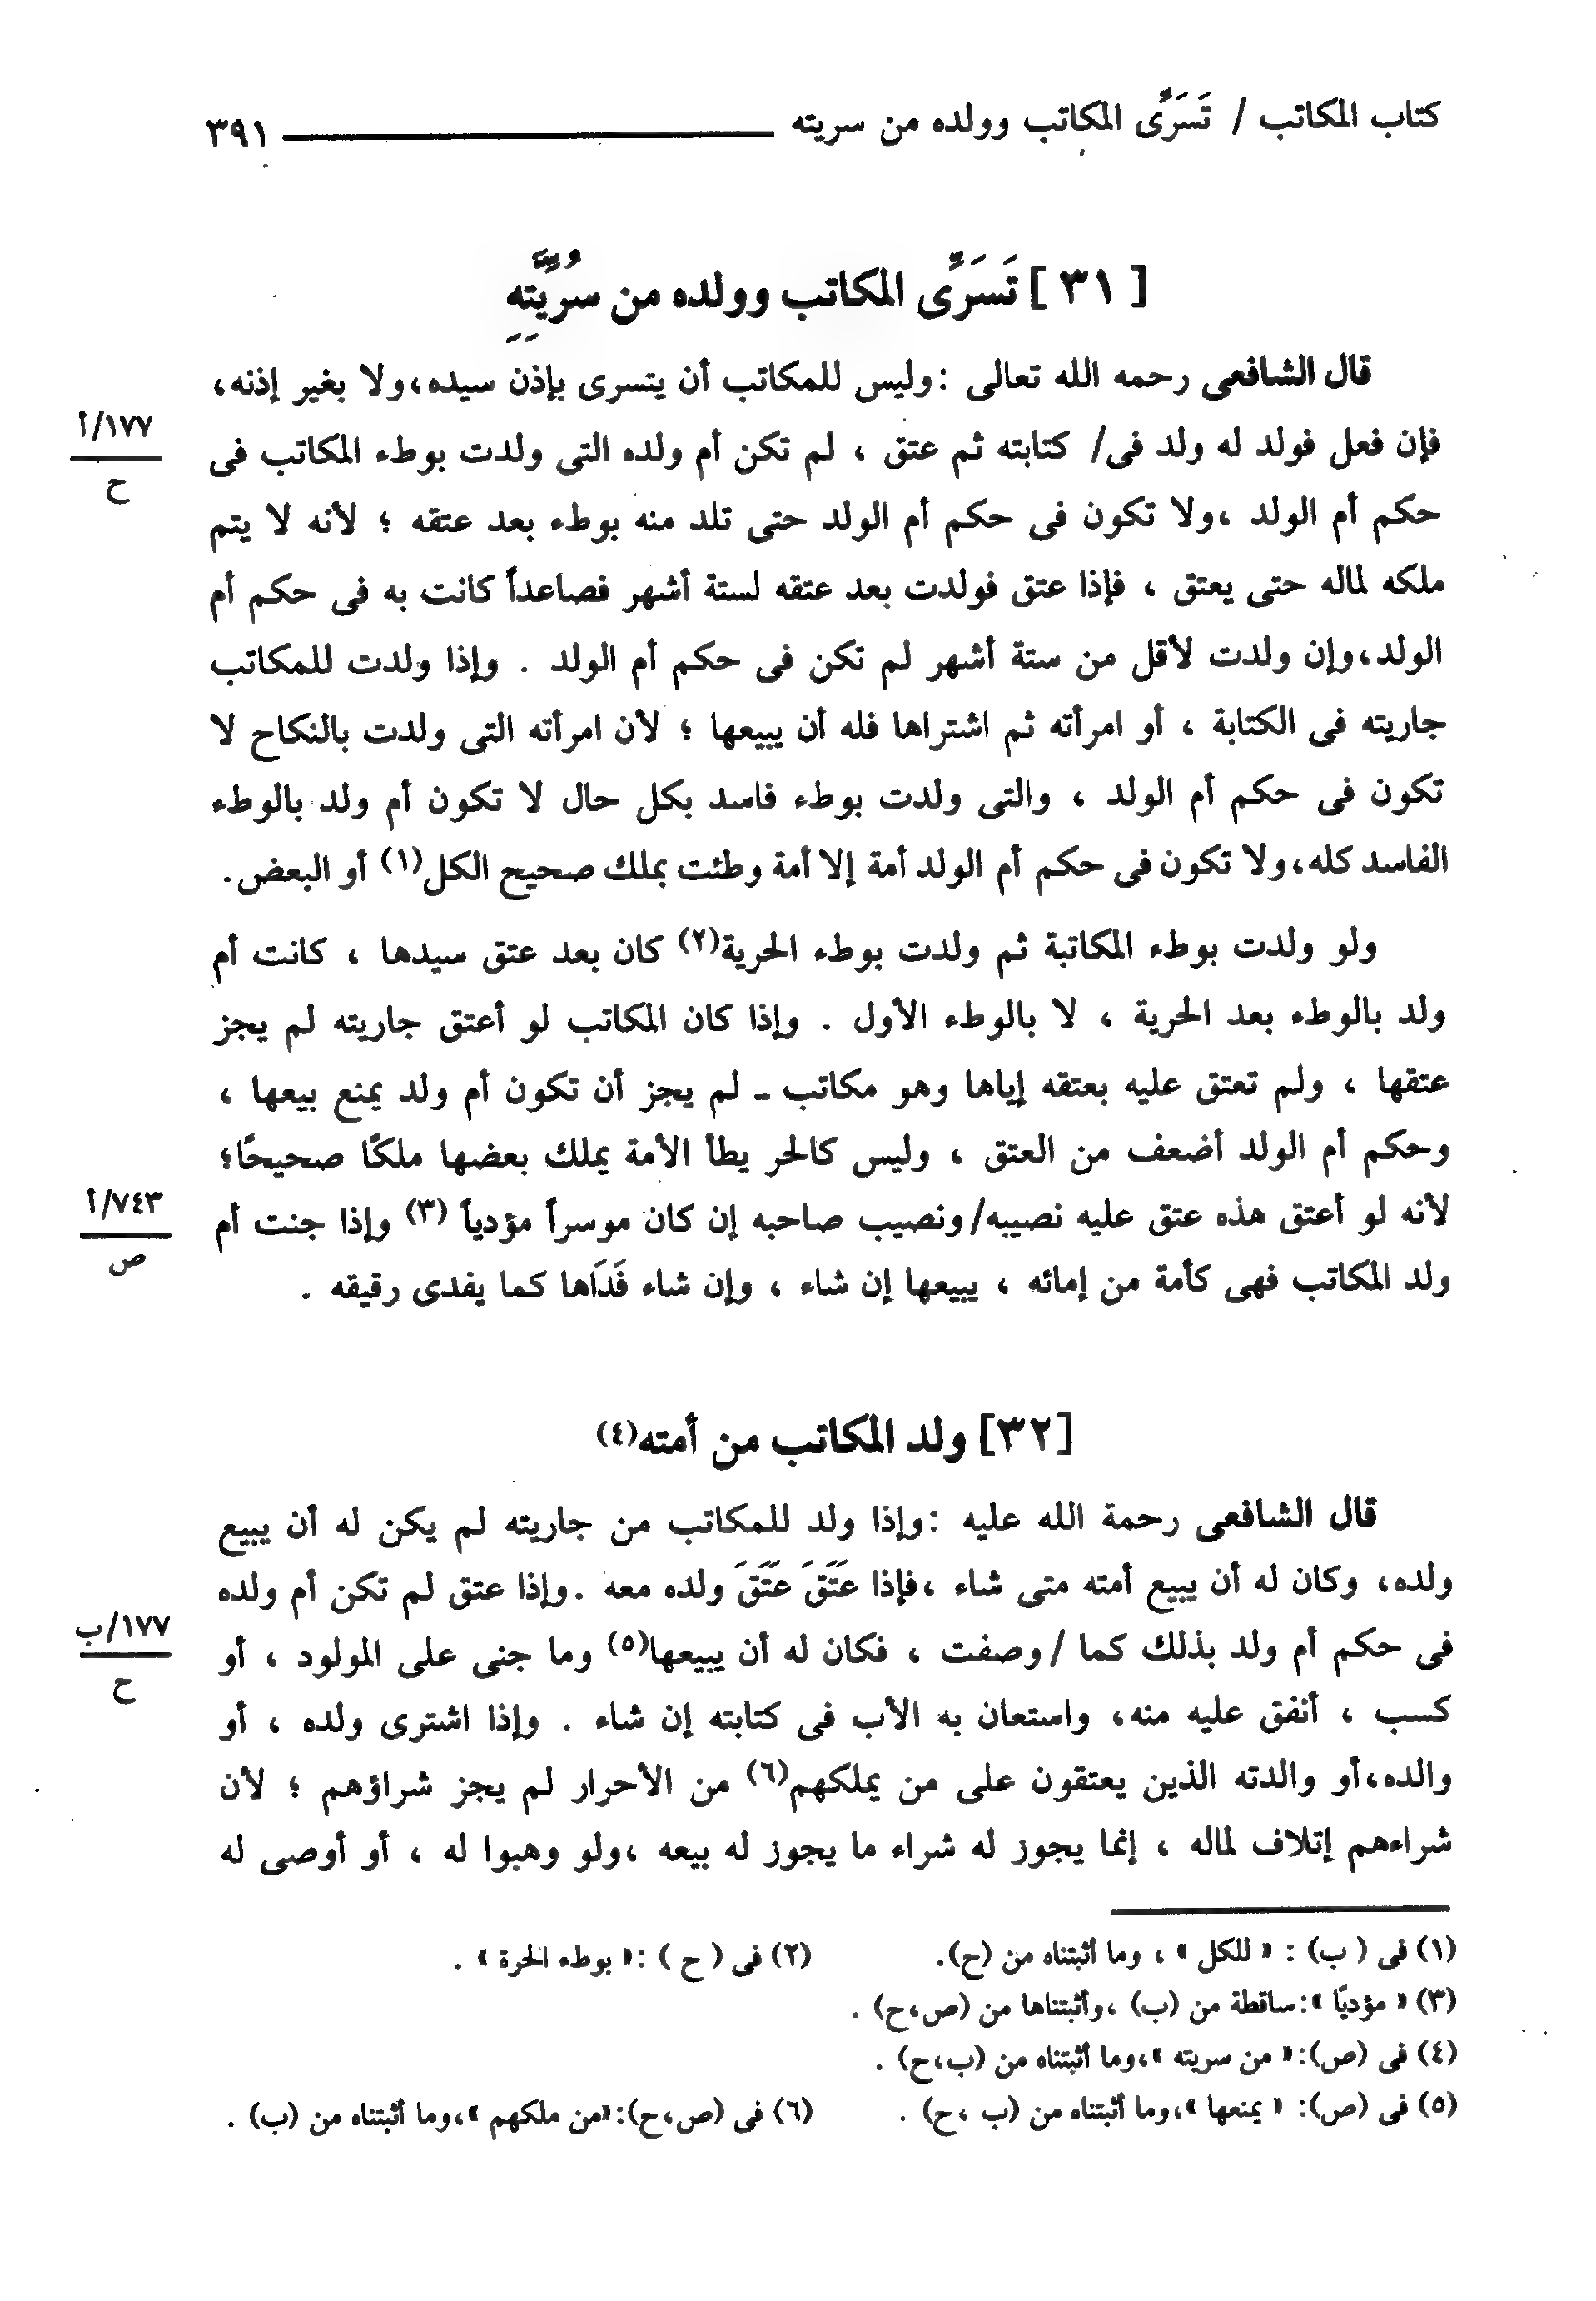 كتاب المكاتب / تَسَرِّى المكاتب وولده من سريته ٣٩١
[ ٣١ ] تَسَرِّى المكاتب وولده من سُرِّيَّتِهِ
قال الشافعى رحمه الله تعالى :وليس للمكاتب أن يتسرى بإذن سيده،ولا بغير إذنه،
١٧٧/أ
ح
فإن فعل فولد له ولد فى/ كتابته ثم عتق ، لم تكن أم ولده التى ولدت بوطء المكاتب فى
حكم أم الولد ،ولا تكون فى حكم أم الولد حتى تلد منه بوطء بعد عتقه ؛ لأنه لا يتم
ملكه لماله حتى يعتق ، فإذا عتق فولدت بعد عتقه لستة أشهر فصاعداً كانت به فى حكم أم
الولد،وإن ولدت لأقل من ستة أشهر لم تكن فى حكم أم الولد . وإذا ولدت للمكاتب
جاريته فى الكتابة ، أو امرأته ثم اشتراها فله أن يبيعها ؛ لأن امرأته التى ولدت بالنكاح لا
تكون فى حكم أم الولد ، والتى ولدت بوطء فاسد بكل حال لا تكون أم ولد بالوطء
الفاسد كله،ولا تكون فى حكم أم الولد أمة إلا أمة وطئت بملك صحيح الكل(١) أو البعض.
ولو ولدت بوطء المكاتبة ثم ولدت بوطء الحرية(٢) كان بعد عتق سيدها ، كانت أم
ولد بالوطء بعد الحرية ، لا بالوطء الأول . وإذا كان المكاتب لو أعتق جاريته لم يجز
عتقها ، ولم تعتق عليه بعتقه إياها وهو مكاتب ـ لم يجز أن تكون أم ولد يمنع بيعها ،
وحكم أم الولد أضعف من العتق ، وليس كالحر يطأ الأمة يملك بعضها ملكًا صحيحًا؛
٧٤٣/أ
ص
لأنه لو أعتق هذه عتق عليه نصيبه/ونصيب صاحبه إن كان موسراً مؤدياً (٣) وإذا جنت أم
ولد المكاتب فهى كأمة من إمائه ، يبيعها إن شاء ، وإن شاء فَدَاها كما يفدى رقيقه .
[٣٢] ولد المكاتب من أمته(٤)
قال الشافعى رحمة الله عليه :وإذا ولد للمكاتب من جاريته لم يكن له أن يبيع
ولده، وكان له أن يبيع أمته متى شاء ،فإذا عَتَقَ عَتَقَ ولده معه .وإذا عتق لم تكن أم ولده
١٧٧/ب
ح
فى حكم أم ولد بذلك كما /وصفت ، فكان له أن يبيعها(٥) وما جنى على المولود ، أو
كسب ، أنفق عليه منه، واستعان به الأب فى كتابته إن شاء . وإذا اشترى ولده ، أو
والده،أو والدته الذين يعتقون على من يملكهم(٦) من الأحرار لم يجز شراؤهم ؛ لأن
شراءهم إتلاف لماله ، إنما يجوز له شراء ما يجوز له بيعه ،ولو وهبوا له ، أو أوصى له
(١) فى ( ب) : « للكل » ، وما أثبتناه من (ح). (٢) فى ( ح ) :« بوطء الحرة » .
(٣) « مؤديًا »:ساقطة من (ب) ،وأثبتناها من (ص،ح) .
(٤) فى (ص):« من سريته »،وما أثبتناه من (ب،ح) .
(٥) فى (ص): « يمنعها »،وما أثبتناه من (ب ،ح) . (٦) فى (ص،ح):«من ملكهم »،وما أثبتناه من (ب) .